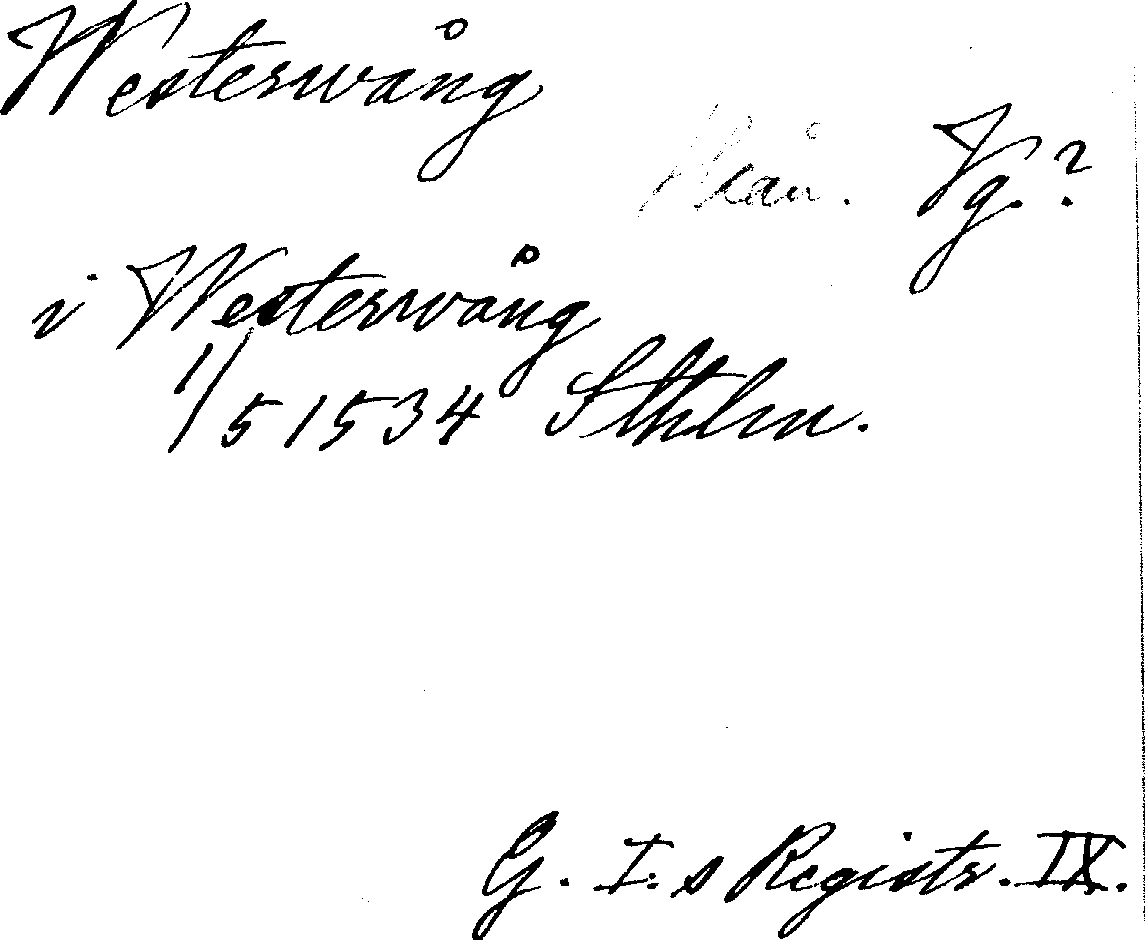 Westerwång
Skån. Vg.?
i Westerwång
1/5 1534 Sthlm.
G. I.s Registr. IX.